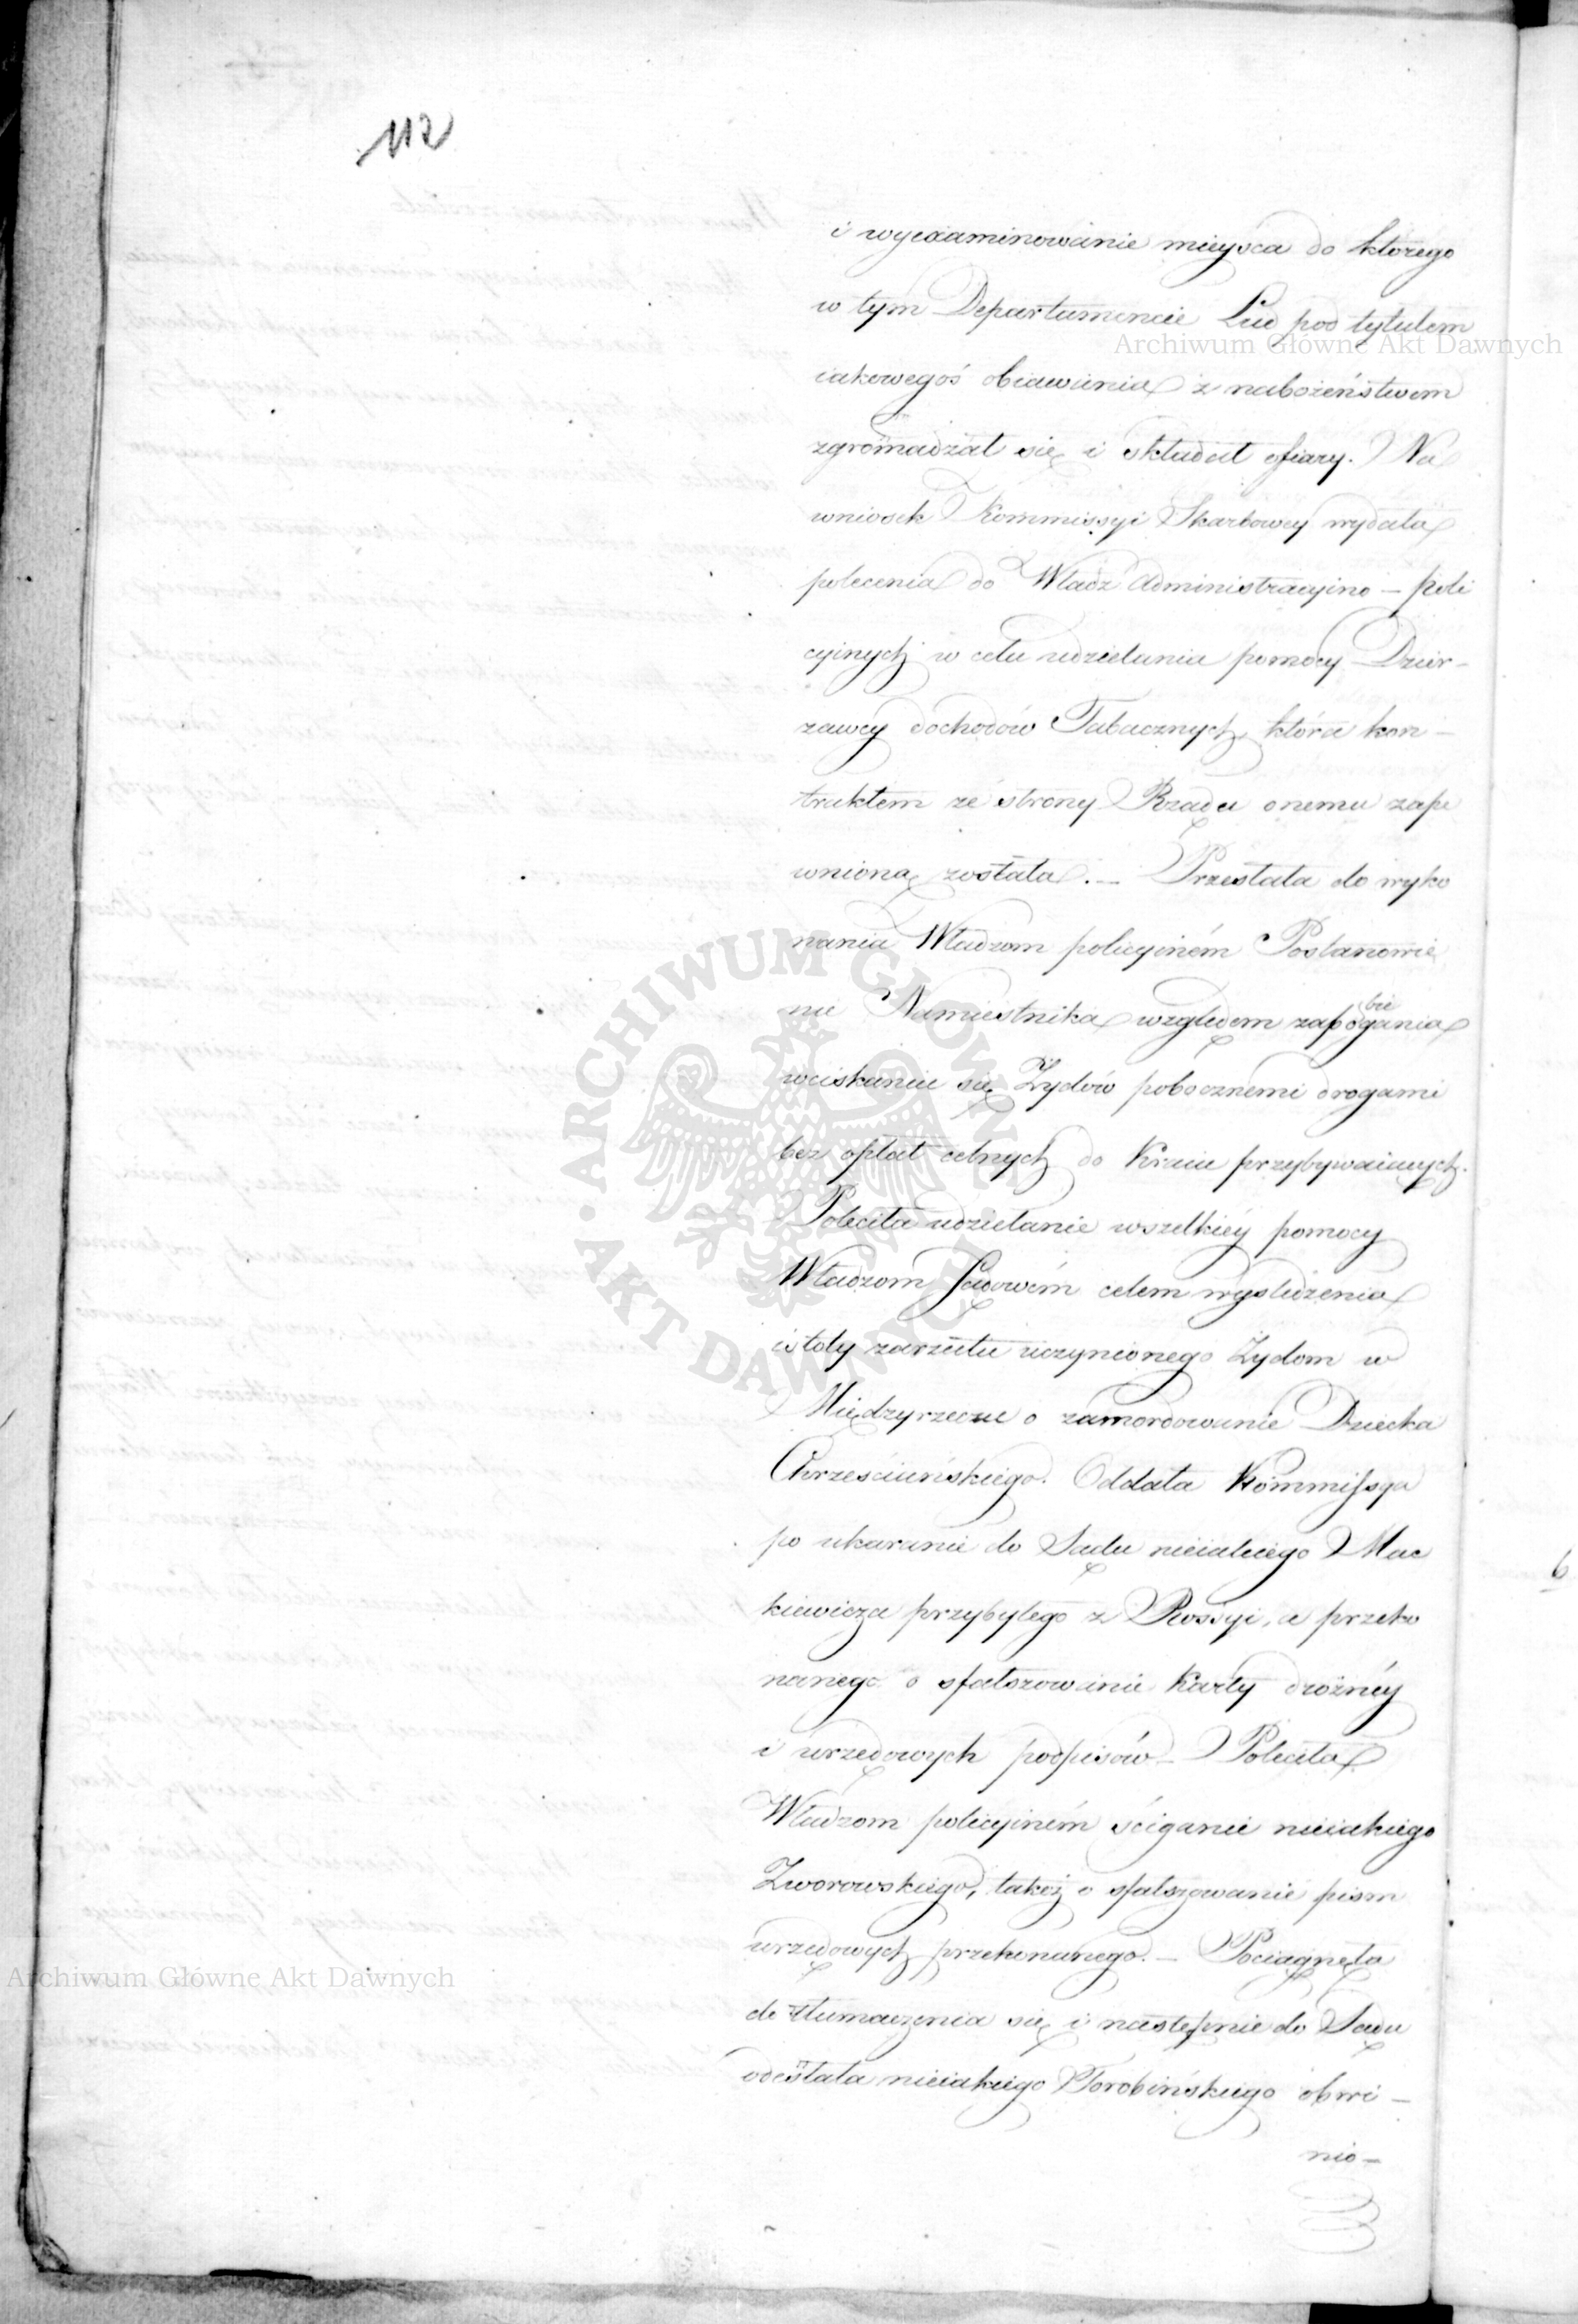 112
i wyexaminowanie mieysca do którego
w tym Departamencie Lud pod tytułem
iakowegoś obiawienia z nabożeństwem
zgromadzał się i składał ofiary. Na
wniosek Kommissyi Skarbowey wydała
polecenia do Władz Administracyino - poli
cyinych w celu udzielania pomocy Dzier-
zawcy dochodów Tabacznych, która kon-
traktem ze strony Rządu onemu zape
wnioną została. - Przesłała do wyko
nania Władzom policyiném Postanowie
nie Namiestnika względem zapobiegania
wciskaniu się Żydów pobocznemi drogami
bez opłat celnych do Kraiu przybywaiących.
Poleciła udzielanie wszelkiéy pomocy
Władzom Sądowém celem wyśledzenia
istoty zarzutu uczynionego Żydom w
Międzyrzeczu o zamordowanie Dziecka
Chrześciiańskiego. Oddała Kommissya
po ukaranie do Sądu nieiakiego Mac
kiewicza przybyłego z Rossyi, a przeko
nanego o sfałszowanie Karty drożnéy
i urzędowych podpisów - Poleciła
Władzom policyiném ściganie nieiakiego
Zworowskiego, także o sfałszowanie pism
urzędowych przekonanego. - Pociągnęła
do tłumaczenia się i następnie do Sądu
odesłała nieiakiego Torobińskiego obwi-
nio-
6
Archiwum Główne Akt Dawnych
Archiwum Główne Akt Dawnych
ARCHIWUM GŁÓWNE · AKT DAWNYCH ·